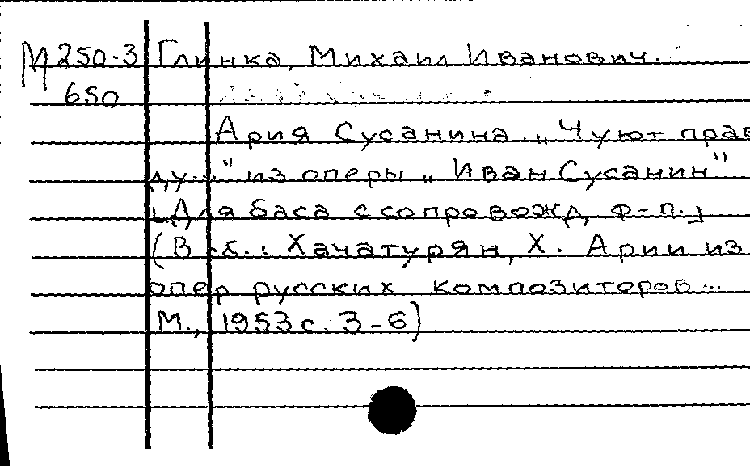 М 250-3 Глинка, Михаил Иванович.
650
Ария Сусанина „Чуют прав
ду..." из оперы „Иван Сусанин"
[Для баса с сопровожд. ф-п.]
(В сб.: Хачатурян, Х. Арии из
опер русских композиторов...
М., 1953 с. 3-6)